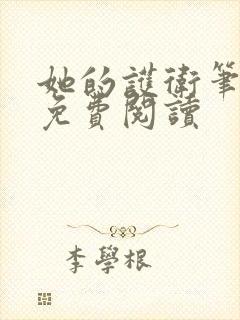 她的護衛筆
免費閱讀
李學根